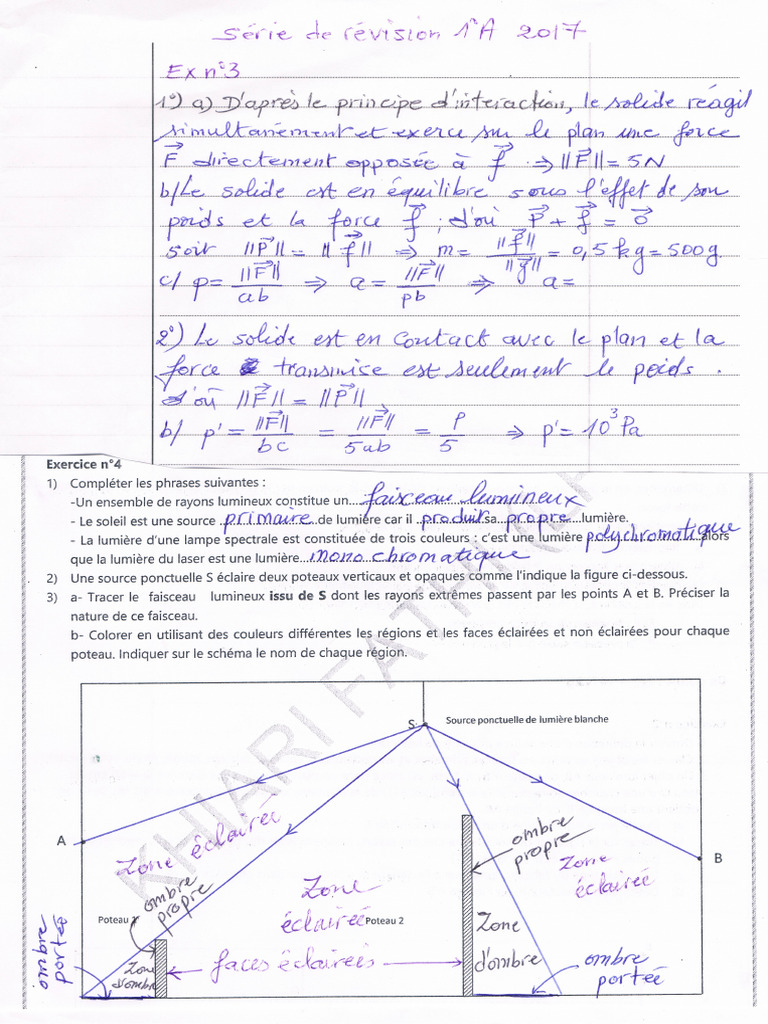 série de révision 1°A 2017
Ex n°3
1°) a) D'après le principe d'interaction, le solide réagit
simultanément et exerce sur le plan une force
F directement opposée à f ⇒ ||F|| = 5N
b/ Le solide est en équilibre sous l'effet de son
poids et la force f ; d'où P + f = 0
soit ||P|| = ||f|| ⇒ m = ||f|| / ||g|| = 0,5 kg = 500g
c/ p = ||F|| / ab ⇒ a = ||F|| / pb ⇒ a =
2°) Le solide est en contact avec le plan et la
force transmise est seulement le poids.
d'où ||F|| = ||P||
b/ p' = ||F|| / bc = ||F|| / 5ab = P / 5 ⇒ p' = 10³ Pa
Exercice n°4
1) Compléter les phrases suivantes :
-Un ensemble de rayons lumineux constitue un....faisceau lumineux
- Le soleil est une source ..primaire..de lumière car il ..produit..sa..propre....lumière.
- La lumière d'une lampe spectrale est constituée de trois couleurs : c'est une lumière polychromatique alors
que la lumière du laser est une lumière...mono chromatique
2) Une source ponctuelle S éclaire deux poteaux verticaux et opaques comme l'indique la figure ci-dessous.
3) a- Tracer le faisceau lumineux issu de S dont les rayons extrêmes passent par les points A et B. Préciser la
nature de ce faisceau.
b- Colorer en utilisant des couleurs différentes les régions et les faces éclairées et non éclairées pour chaque
poteau. Indiquer sur le schéma le nom de chaque région.
S
Source ponctuelle de lumière blanche
A
B
Zone éclairée
ombre propre
Zone
éclairée
Poteau 1
ombre propre
Zone
éclairée
Poteau 2
Zone
d'ombre
faces éclairées
Zone
d'ombre
ombre
portée
ombre
portée
KHIARI FATHI